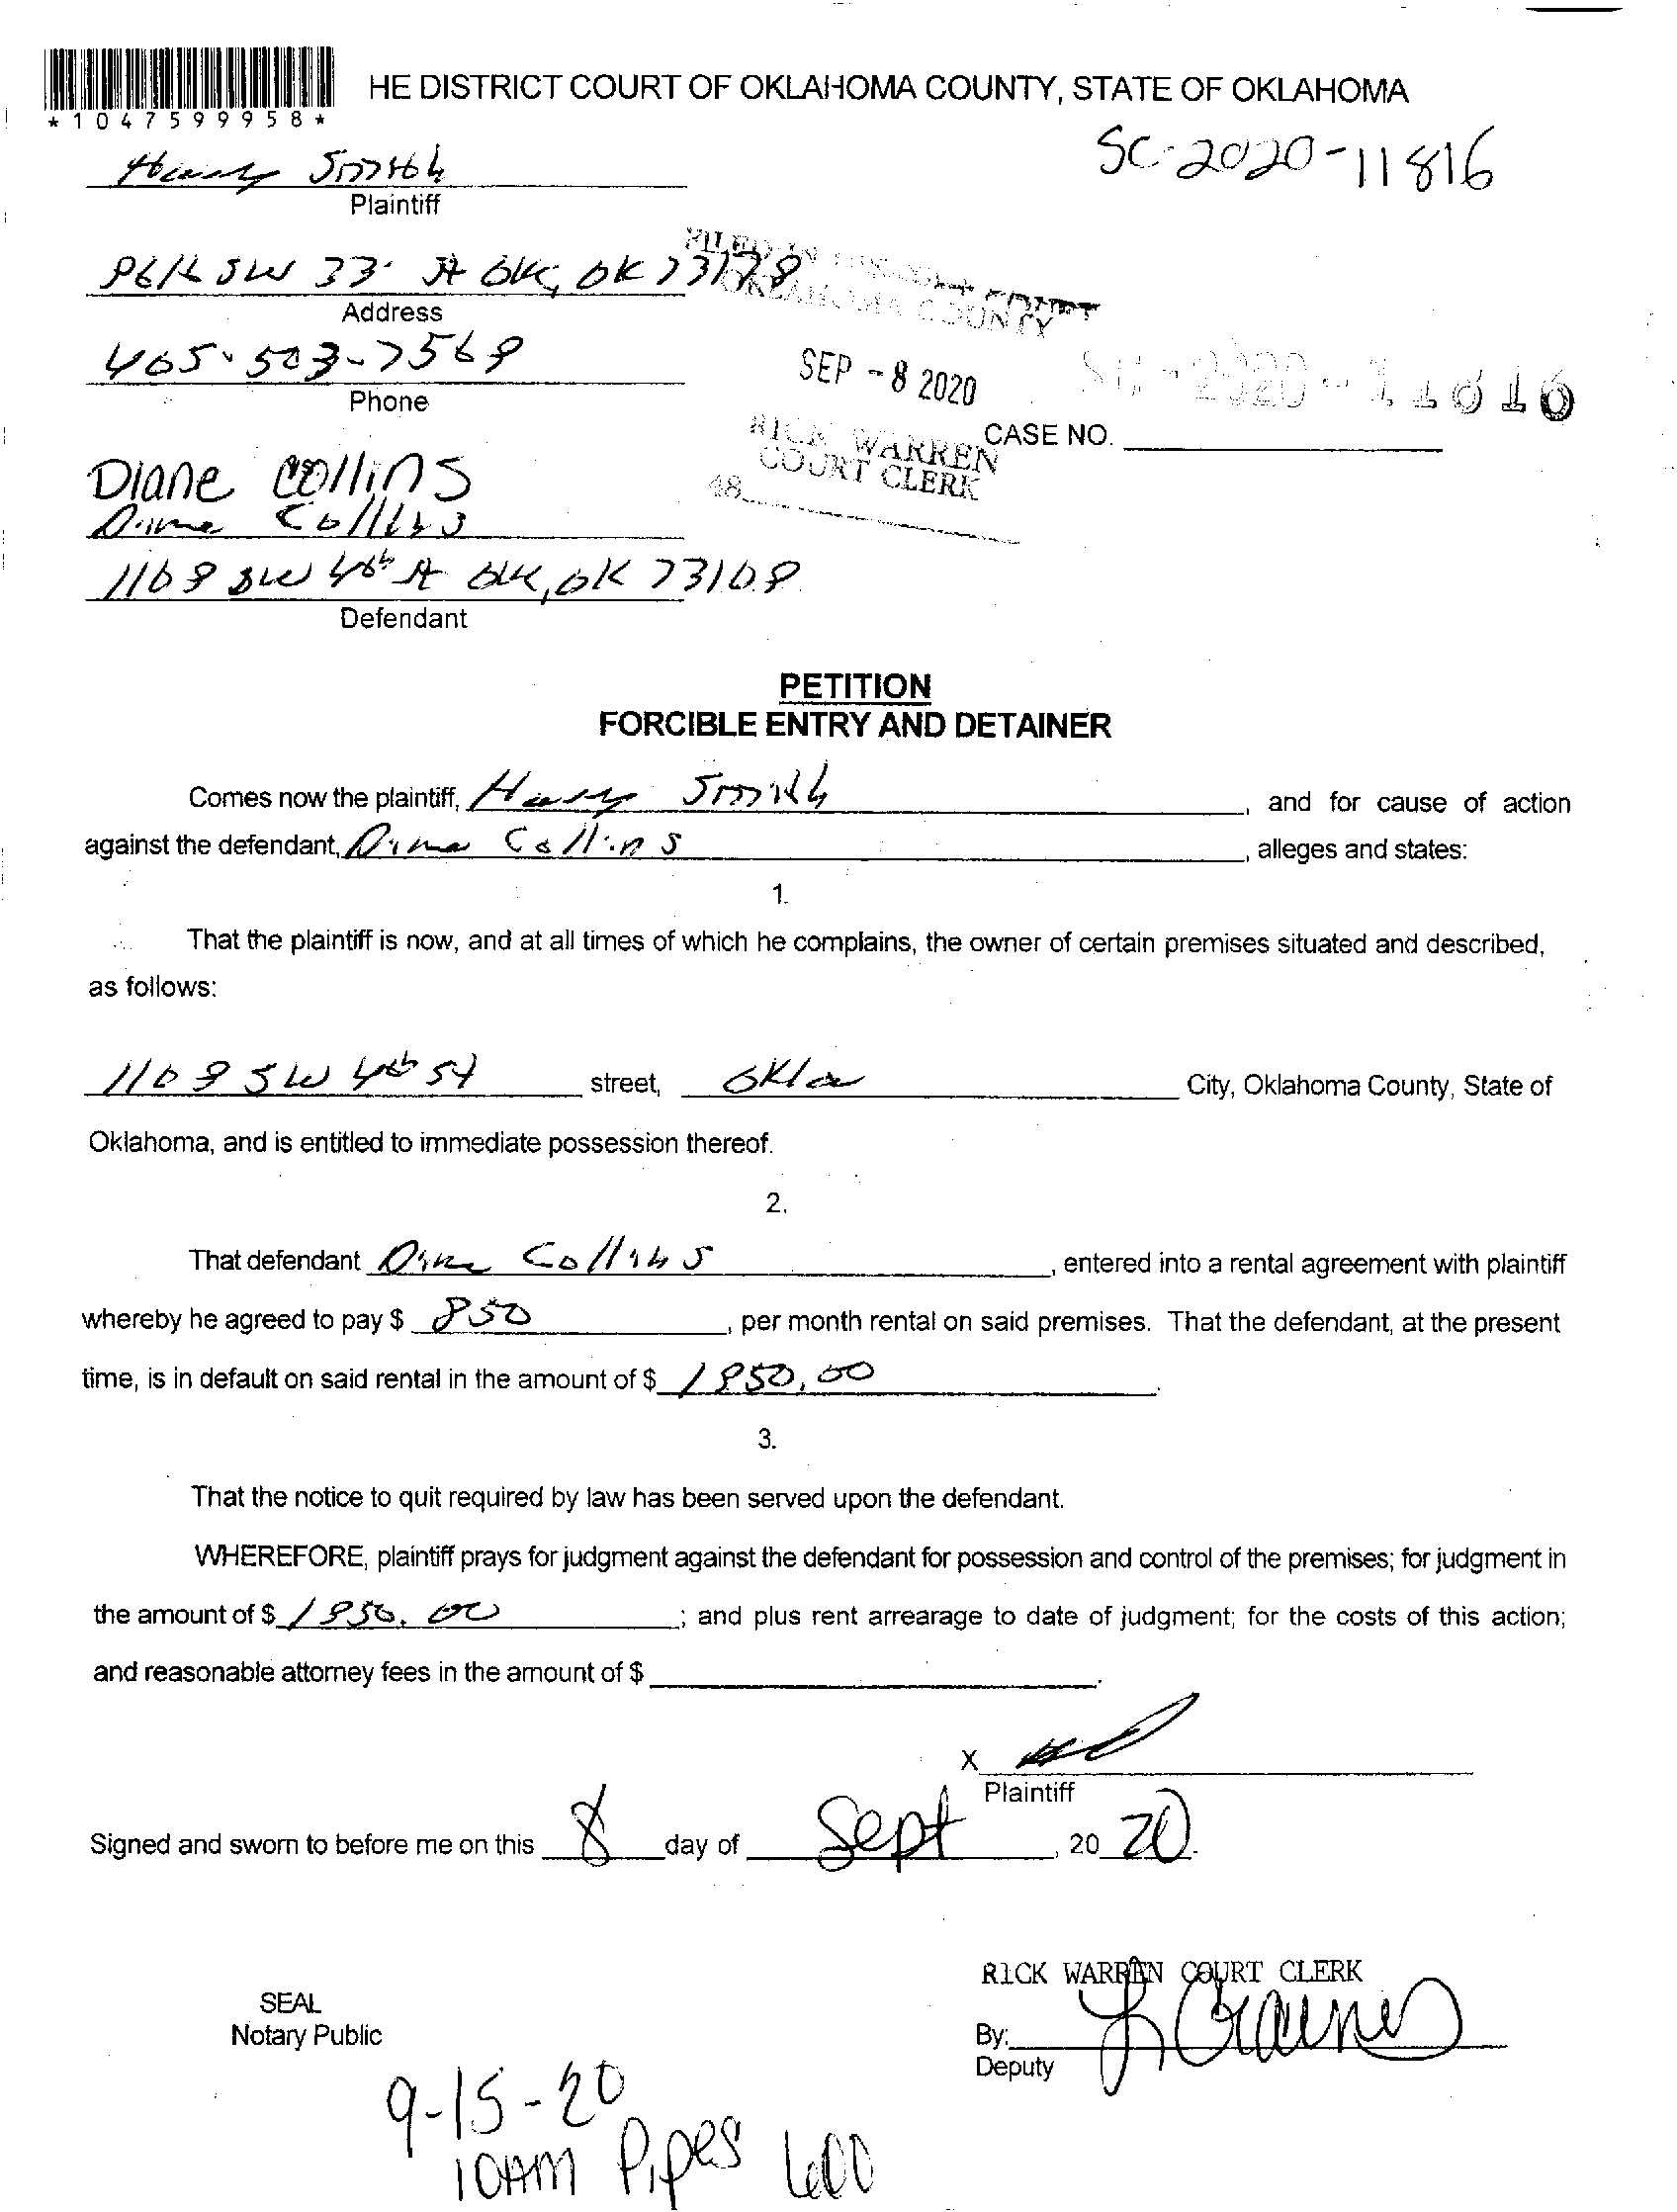 HE DISTRICT COURT OF OKLAHOMA COUNTY, STATE OF OKLAHOMA
*1047599958*
SC-2020-11816
Smith
Plaintiff
SW 33 St OKC, OK
Address
FILED IN DISTRICT COURT
OKLAHOMA COUNTY
405-503-7569
Phone
SEP -8 2020
SC-2020-11816
RICK WARREN
COURT CLERK
48
CASE NO.
Diane Collins
Diane Collins
SW St OKC, OK 73108
Defendant
PETITION
FORCIBLE ENTRY AND DETAINER
Comes now the plaintiff, Smith, and for cause of action
against the defendant, Diane Collins, alleges and states:
1.
That the plaintiff is now, and at all times of which he complains, the owner of certain premises situated and described,
as follows:
SW St street, Okla City, Oklahoma County, State of
Oklahoma, and is entitled to immediate possession thereof.
2.
That defendant Diane Collins, entered into a rental agreement with plaintiff
whereby he agreed to pay $ 850, per month rental on said premises. That the defendant, at the present
time, is in default on said rental in the amount of $ 1850.00.
3.
That the notice to quit required by law has been served upon the defendant.
WHEREFORE, plaintiff prays for judgment against the defendant for possession and control of the premises; for judgment in
the amount of $ 1850.00; and plus rent arrearage to date of judgment; for the costs of this action;
and reasonable attorney fees in the amount of $.
X
Plaintiff
Signed and sworn to before me on this 8 day of Sept, 20 20.
RICK WARREN COURT CLERK
SEAL
Notary Public
By:
Deputy
9-15-20
10AM Pipes 600